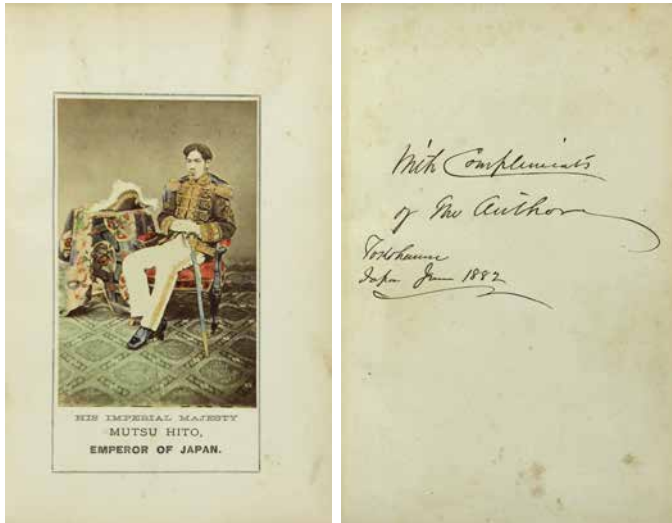 HIS IMPERIAL MAJESTY
MUTSU HITO,
EMPEROR OF JAPAN.
With Compliments
of The Author
Yokohama
Japan June 1882